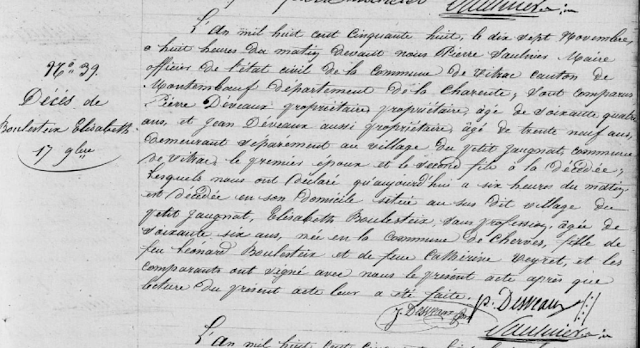 N.o 39.
Décès de
Boulesteix Elisabeth
17 9bre
L'An mil huit cent cinquante huit, le dix sept Novembre
à huit heures du matin devant nous Pierre Saulnier Maire
officier de l'état civil de la Commune de Vitrac canton de
Montembœuf Département de la Charente, sont comparus
Pierre Deveaux propriétaire propriétaire, âgé de soixante quatre
ans, et Jean Deveaux aussi propriétaire, âgé de trente neuf ans,
demeurant séparement au village du petit jaugnat commune
de Vitrac le premier époux et le second fils à la décédée;
Lesquels nous ont déclaré qu'aujourd'hui a six heures du matin
est décédée en son domicile situé au sus dit village du
petit jaugnat, Elisabeth Boulesteix, sans profession, agée de
soixante six ans, née en la commune de Cherves, fille de
feu Léonard Boulesteix et de feue Catherine Veyret, et les
comparants ont signé avec nous le présent acte après que
lecture du présent acte leur a été faite.
J. Desveaux
p. Desveaux
Saulnier
L'An mil huit cent cinq